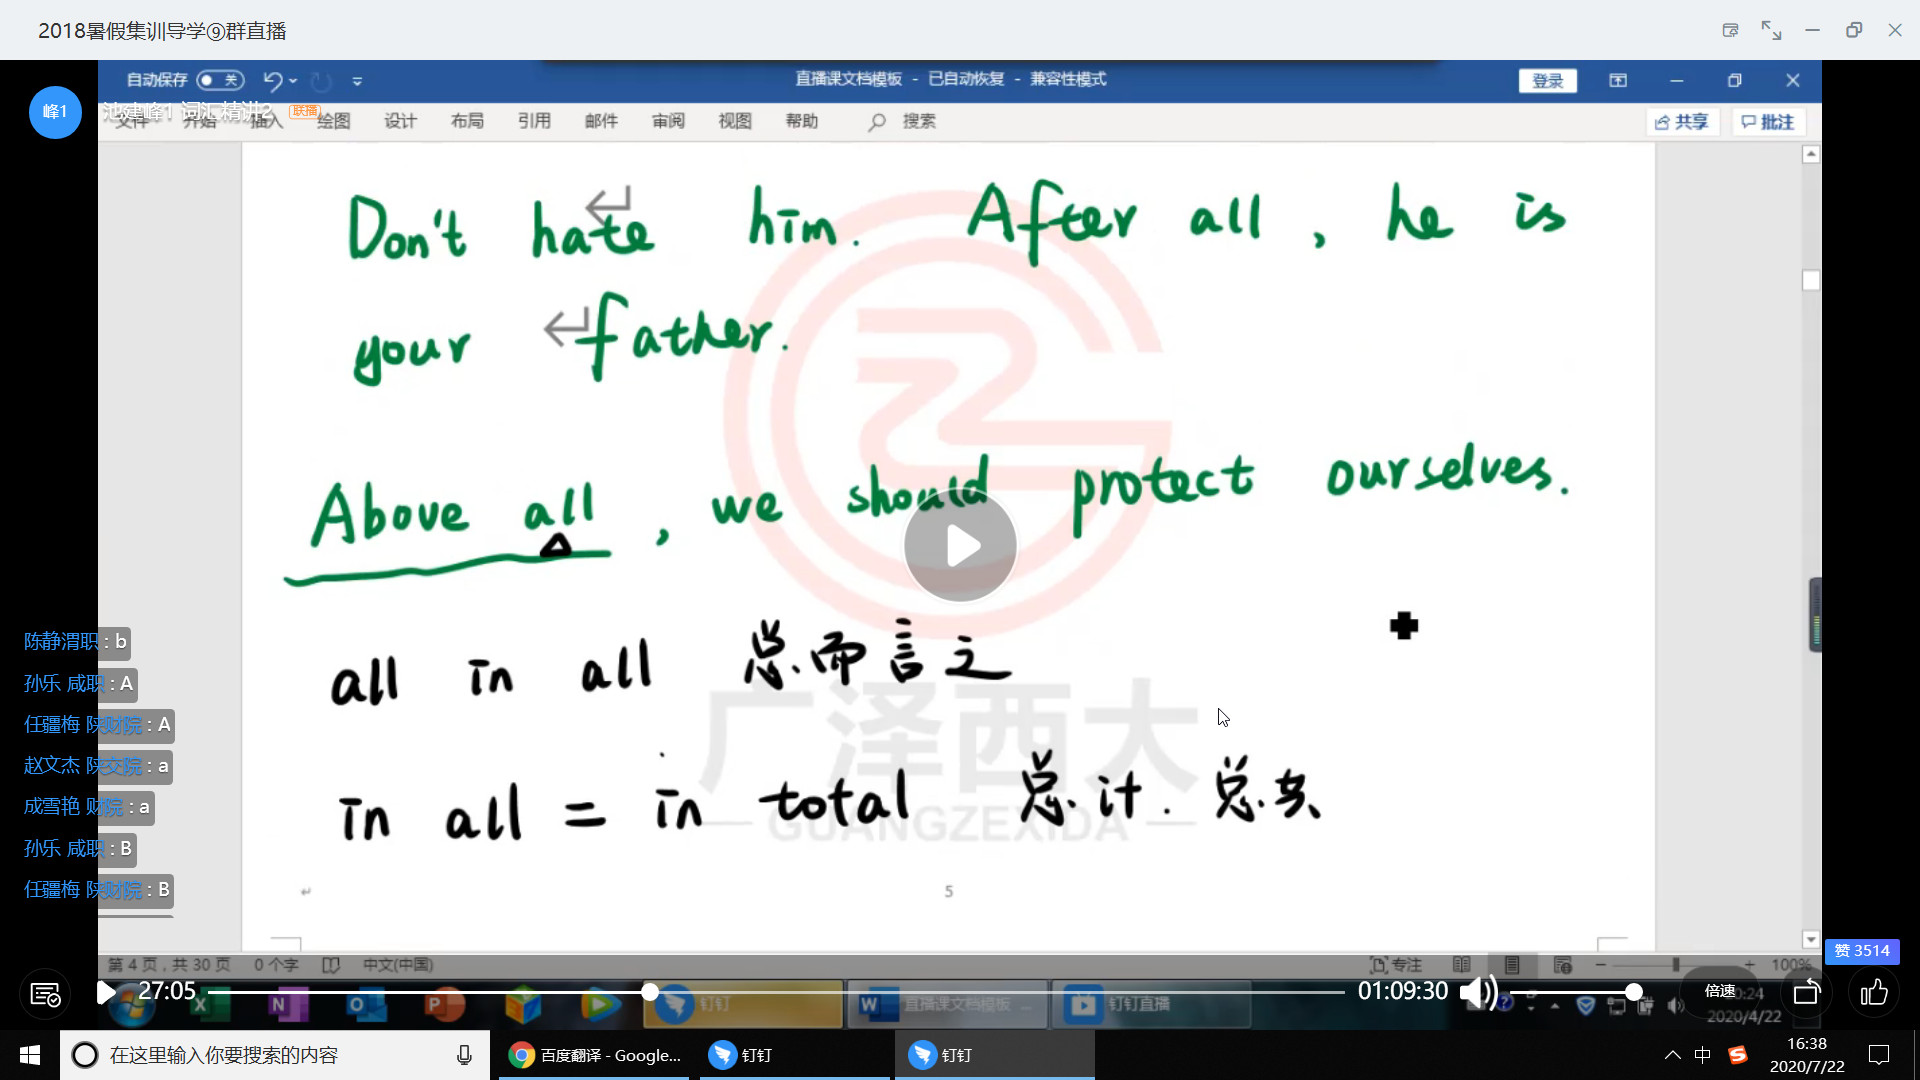 2018暑假集训导学⑨群直播
自动保存 关
直播课文档模板 - 已自动恢复 - 兼容性模式
登录
峰1
池建峰1 词汇精讲2 联播
文件 开始 插入 绘图 设计 布局 引用 邮件 审阅 视图 帮助 搜索
共享 批注
Don't hate him. After all, he is
your father.
Above all, we should protect ourselves.
all in all 总而言之
in all = in total 总计. 总共
广泽西大
GUANGZEXIDA
陈静渭职 : b
孙乐 咸职 : A
任疆梅 陕财院 : A
赵文杰 陕交院 : a
成雪艳 财院 : a
孙乐 咸职 : B
任疆梅 陕财院 : B
5
赞 3514
第 4 页，共 30 页 0 个字 中文(中国)
专注 100%
27:05
01:09:30
倍速
钉钉
直播课文档模板 ...
钉钉直播
2020/4/22
在这里输入你要搜索的内容
百度翻译 - Google...
钉钉
钉钉
中
16:38
2020/7/22